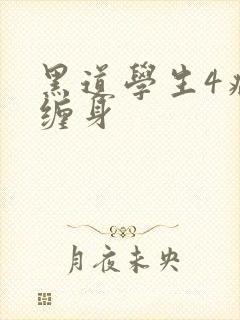 黑道學生4
缠身
月夜未央